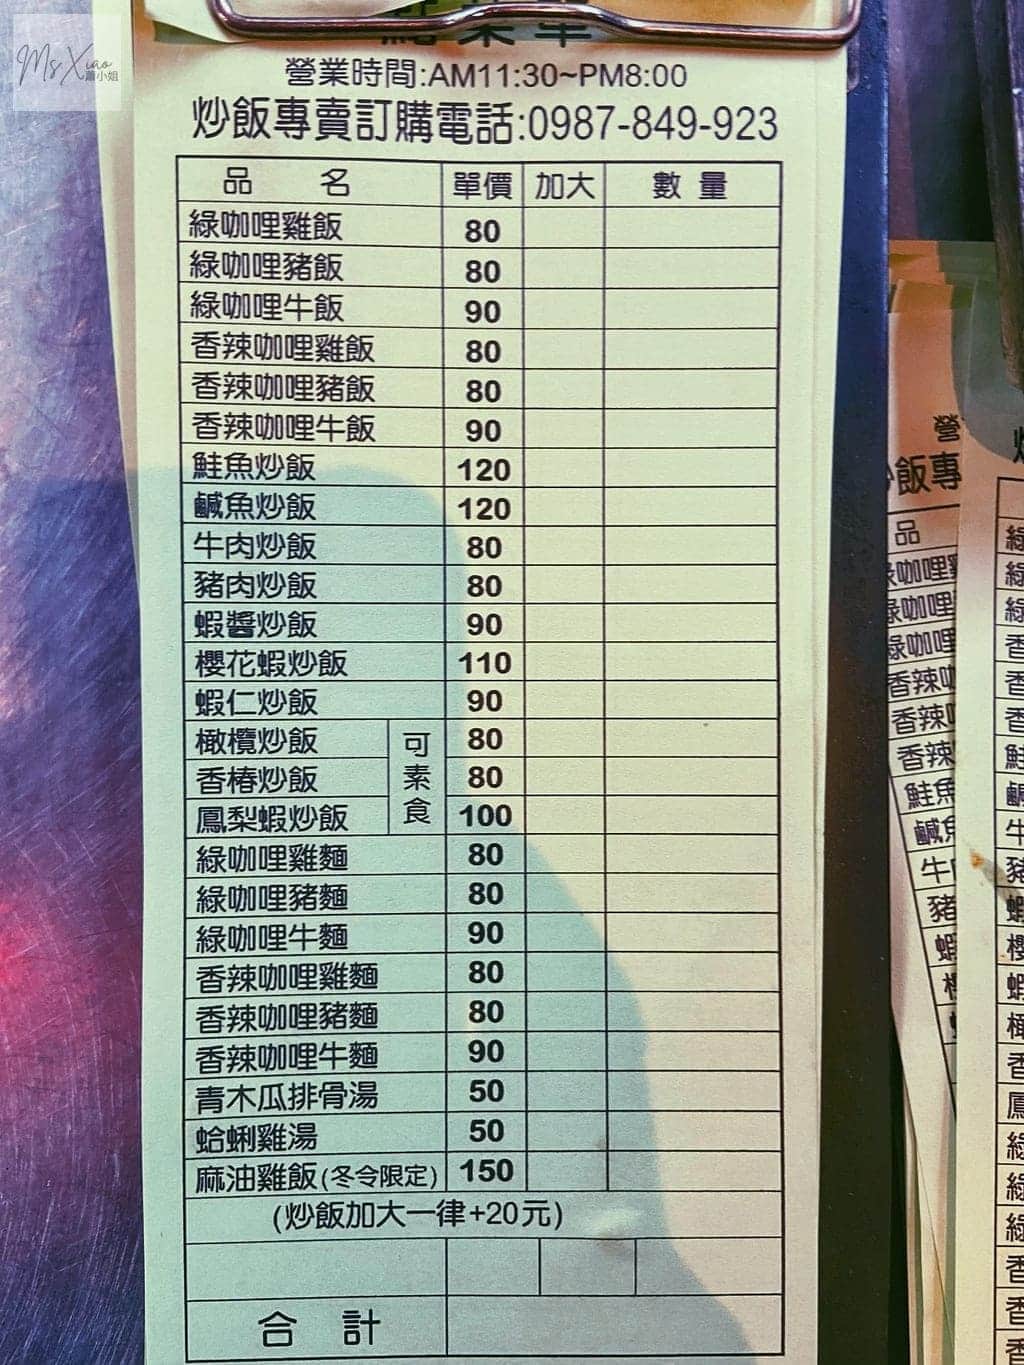 Ms Xiao
蕭小姐
點菜單
營業時間:AM11:30~PM8:00
炒飯專賣訂購電話:0987-849-923
品 名 單價 加大 數量
綠咖哩雞飯 80
綠咖哩豬飯 80
綠咖哩牛飯 90
香辣咖哩雞飯 80
香辣咖哩豬飯 80
香辣咖哩牛飯 90
鮭魚炒飯 120
鹹魚炒飯 120
牛肉炒飯 80
豬肉炒飯 80
蝦醬炒飯 90
櫻花蝦炒飯 110
蝦仁炒飯 90
橄欖炒飯 80
香椿炒飯 可素食 80
鳳梨蝦炒飯 100
綠咖哩雞麵 80
綠咖哩豬麵 80
綠咖哩牛麵 90
香辣咖哩雞麵 80
香辣咖哩豬麵 80
香辣咖哩牛麵 90
青木瓜排骨湯 50
蛤蜊雞湯 50
麻油雞飯(冬令限定) 150
(炒飯加大一律+20元)
合 計
營
飯專
品
咖哩
咖哩
咖哩
香辣
香辣
香辣
鮭魚
鹹
牛
豬
蝦
綠
綠
綠
香
香
香
鮭
鹹
牛
豬
蝦
櫻
蝦
橄
香
鳳
綠
綠
綠
香
香
香